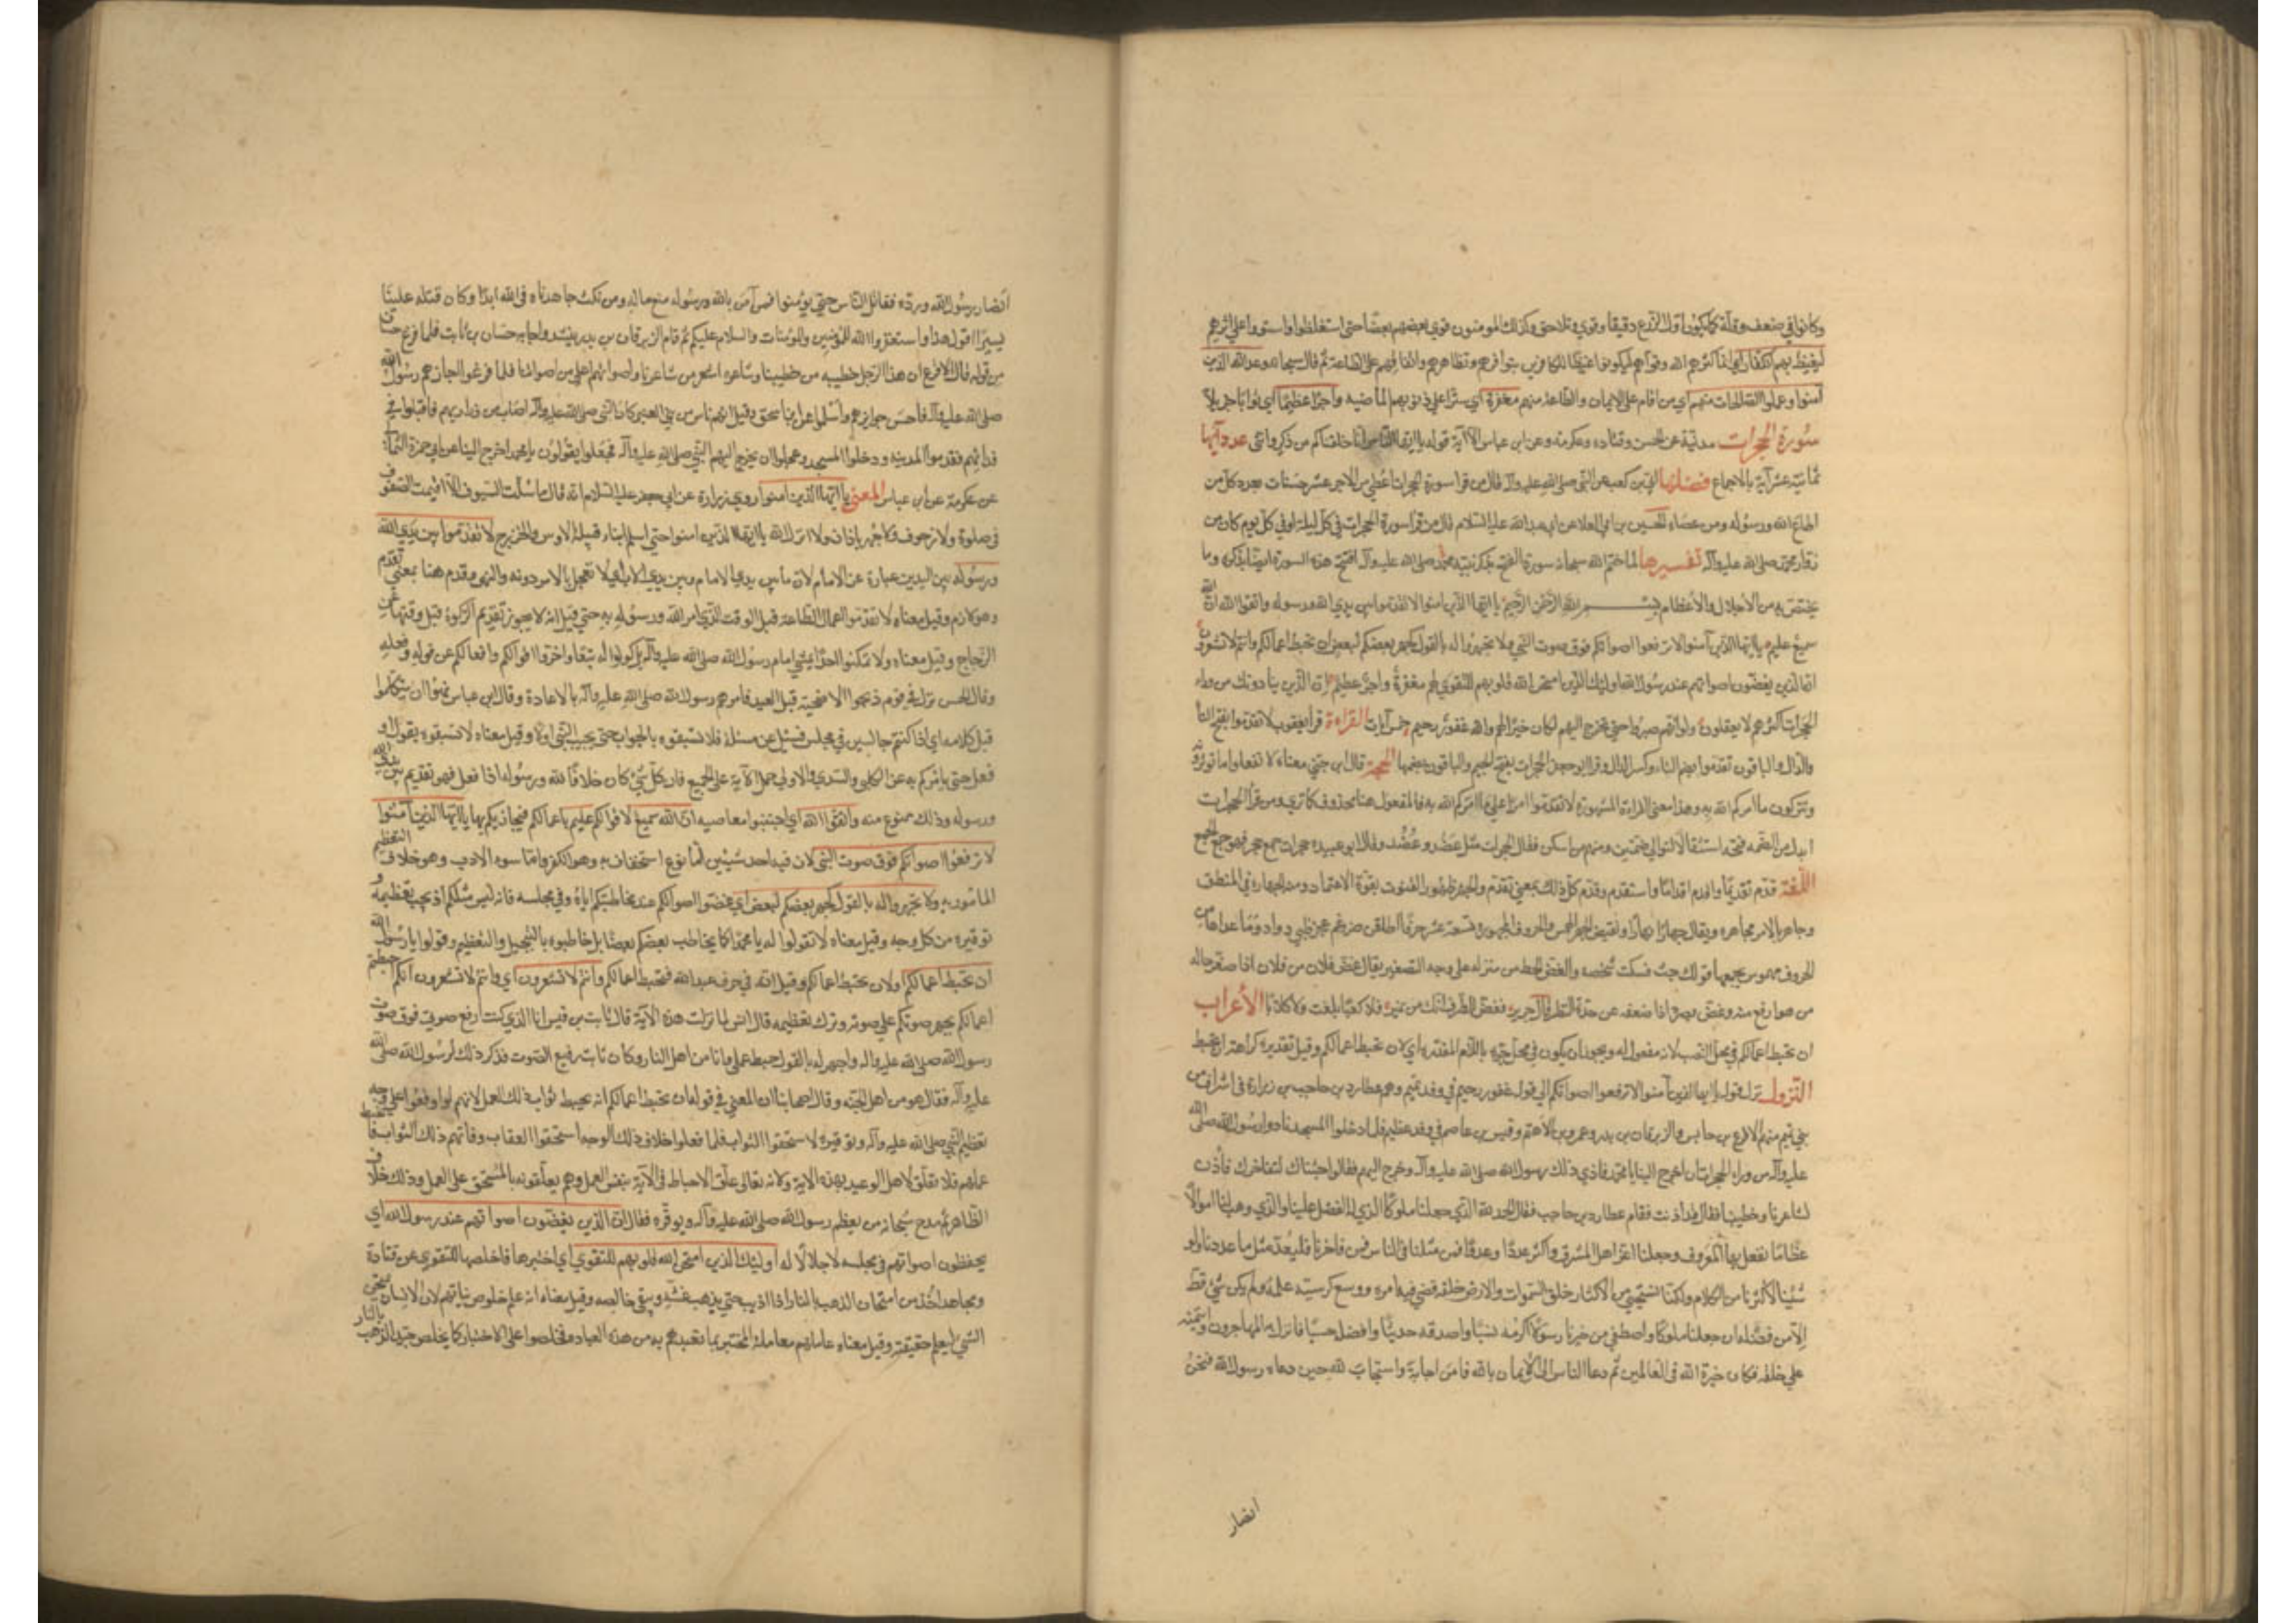 وكانوا في ضعف وقلة كما يكون اول الزرع دقيقا ثم قوي وتلاحق وكذلك المومنون قوي بعضهم بعضا حتى استغلظوا واستووا على امرهم
ليغيظ بهم الكفار اي انما كثرهم الله وقواهم ليكونوا غيظا للكافرين بتوافرهم وتظاهرهم واتفاقهم على الطاعة ثم قال سبحانه وعد الله الذين
آمنوا وعملوا الصالحات منهم اي من اقام على الايمان والطاعة منهم مغفرة اي سترا على ذنوبهم الماضيه واجرا عظيما اي ثوابا جزيلا
سورة الحجرات مدنية عن الحسن وقتاده وعكرمه وعن ابن عباس الا آية قوله يا ايها الناس انا خلقناكم من ذكر وانثى عدد آيها
ثمانية عشر آية بالاجماع فضلها ابي بن كعب عن النبي صلى الله عليه وآله قال من قرا سورة الحجرات اعطي من الاجر عشر حسنات بعدد كل من
اطاع الله ورسوله ومن عصاه الحسين بن ابي العلا عن ابي عبد الله عليه السلام قال من قرا سورة الحجرات في كل ليلة او في كل يوم كان من
زوار محمد صلى الله عليه وآله تفسيرها لما ختم الله سبحانه سورة الفتح بذكر نبيه محمد صلى الله عليه وآله افتتح هذه السورة ايضا بذكره وما
يختص به من الاجلال والاعظام بسم الله الرحمن الرحيم يا ايها الذين امنوا لا تقدموا بين يدي الله ورسوله واتقوا الله ان الله
سميع عليم يا ايها الذين آمنوا لا ترفعوا اصواتكم فوق صوت النبي ولا تجهروا له بالقول كجهر بعضكم لبعض ان تحبط اعمالكم وانتم لا تشعرون
ان الذين يغضون اصواتهم عند رسول الله اولئك الذين امتحن الله قلوبهم للتقوي لهم مغفرة واجر عظيم ان الذين ينادونك من وراء
الحجرات اكثرهم لا يعقلون ولو انهم صبروا حتى تخرج اليهم لكان خيرا لهم والله غفور رحيم خمس آيات القراءة قرا يعقوب لا تقدموا بفتح التا
والدال والباقون تقدموا بضم التاء وكسر الدال وقرا ابو جعفر الحجرات بفتح الجيم والباقون بضمها الحجة قال ابن جني معناه لا تفعلوا ما تؤثرونه
وتتركون ما امركم الله به وهذا معنى القراءة المشهورة لا تقدموا امرا على ما امركم الله به فالمفعول هنا محذوف كما ترى ومن قرا الحجرات
ابدل من الضمه فتحه استثقالا لتوالي ضمتين ومنهم من اسكن فقال الحجرات مثل عضد وعضد وقال ابو عبيده حجرات جمع حجر فهو جمع الجمع
اللغة قدم تقديما واقدم اقداما واستقدم وقدم كل ذلك بمعنى تقدم والجهر ظهور الصوت بقوة الاعتماد ومنه الجهارة في المنطق
وجاهر بالامر مجاهره ويقال جهارا نهارا ونقيض الجهر الهمس والحروف المجهورة تسعة عشر حرفا وما عداها من
الحروف مهموس يجمعها قولك حث فسكت شخصه والغض الحط من منزله على وجه التصغير يقال غض فلان من فلان اذا صغر حاله
من هو ارفع منه وغض بصره اذا ضعفه عن حدة النظر قال جرير فغض الطرف انك من نمير فلا كعبا بلغت ولا كلابا الأعراب
ان تحبط اعمالكم في محل النصب لانه مفعول له ويجوز ان يكون في محل جر باللام المقدره اي لان تحبط اعمالكم وقيل تقديره كراهة ان تحبط
النزول نزل قوله يا ايها الذين آمنوا لا ترفعوا اصواتكم الى قوله غفور رحيم في وفد تميم وهم عطارد بن حاجب بن زرارة في اشراف من
بني تميم منهم الاقرع بن حابس والزبرقان بن بدر وعمرو بن الاهتم وقيس بن عاصم في وفد عظيم فلما دخلوا المسجد نادوا رسول الله صلى الله
عليه وآله من وراء الحجرات ان اخرج الينا يا محمد فاذي ذلك رسول الله صلى الله عليه وآله وخرج اليهم فقالوا جئناك لنفاخرك فأذن
لشاعرنا وخطيبنا فقال قد اذنت فقام عطارد بن حاجب فقال الحمد لله الذي جعلنا ملوكا الذي له الفضل علينا والذي وهب لنا اموالا
عظاما نفعل بها المعروف وجعلنا اعز اهل المشرق واكثر عددا وعدة فمن مثلنا في الناس فمن فاخرنا فليعد مثل ما عددنا ولو
شئنا لاكثرنا من الكلام ولكنا نستحيي من الاكثار خلق السموات والارض خلقه قضي فيها امره ووسع كرسيه علمه ولم يكن شيء قط
الا من فضله ان جعلنا ملوكا واصطفي من خير خلقه رسولا اكرمه نسبا واصدقه حديثا وافضله حسبا فانزل المهاجرون وايتمنه
على خلقه فكان خيرة الله في العالمين ثم دعا الناس الى الايمان بالله فامن اجابة واستجاب لله حين دعاه رسول الله فنحن
انصار
انصار رسول الله وردءه فقاتل الناس حتى يؤمنوا فمن آمن بالله ورسوله منع ماله ومن نكث جاهدناه في الله ابدا وكان قتله علينا
يسيرا اقول هذا واستغفروا الله للمؤمنين والمؤمنات والسلام عليكم ثم قام الزبرقان بن بدر ينشد واجابه حسان بن ثابت فلما فرغ حسان
من قوله قال الاقرع ان هذا الرجل خطيبه من خطيبنا وشاعره اشعر من شاعرنا واصواتهم اعلى من اصواتنا فلما فرغوا اجازهم رسول الله
صلى الله عليه وآله فاحسن جوايزهم واسلموا عن ابن اسحق وقيل انهم ناس من بني العنبر كان النبي صلى الله عليه وآله اصاب من ذراريهم فاقبلوا في
فدائهم فقدموا المدينه ودخلوا المسجد وعجلوا ان يخرج اليهم النبي صلى الله عليه وآله فجعلوا يقولون يا محمد اخرج الينا عن ابي حمزة الثمالي
عن عكرمة عن ابن عباس المعنى يا ايها الذين امنوا روي زرارة عن ابي جعفر عليه السلام انه قال ما سلت السيوف ولا اقيمت الصفوف
في صلوة ولا زحوف ولا جهر باذان ولا انزل الله يا ايها الذين امنوا حتى اسلم ابناء قبيلة الاوس والخزرج لا تقدموا بين يدي الله
ورسوله بين اليدين عبارة عن الامام لان ما بين يدي الانسان امامه ومعناه لا تعجل بالامر دونه والنهي وقدم هنا بمعنى تقدم
وهو لازم وقيل معناه لا تقدموا اعمال الطاعة قبل الوقت الذي امر الله ورسوله به حتى قيل انه لا يجوز تقديم الزكوة قبل وقتها عن
الزجاج وقيل معناه ولا تمكنوا احدا يمشي امام رسول الله صلى الله عليه وآله بل كونوا له تبعا واخروا اقوالكم وافعالكم عن قوله وفعله
وقال الحسن نزل في قوم ذبحوا الاضحية قبل العيد فامرهم رسول الله صلى الله عليه وآله بالاعادة وقال ابن عباس نهوا ان يتكلموا
قبل كلامه اي اذا كنتم جالسين في مجلس فسئل عن مسئلة فلا تسبقوه بالجواب حتى يجيب النبي اولا وقيل معناه لا تسبقوه بقول ولا
فعل حتى يامركم به عن الكلبي والسدي والاولى حمل الآية على الجميع فان كل شيء كان خلافا لله ورسوله اذا فعل فهو تقديم بين يدي الله
ورسوله وذلك ممنوع منه واتقوا الله اي اجتنبوا معاصيه ان الله سميع لاقوالكم عليم باعمالكم فيجازيكم بها يا ايها الذين آمنوا
لا ترفعوا اصواتكم فوق صوت النبي لان فيه احد شيئين اما نوع استخفاف به وهو الكفر واما سوء الادب وهو خلاف التعظيم
المامور به ولا تجهروا له بالقول كجهر بعضكم لبعض اي غضوا اصواتكم عند مخاطبتكم اياه وفي مجلسه فانه ليس مثلكم اذ يجب تعظيمه و
توقيره من كل وجه وقيل معناه لا تقولوا له يا محمد كما يخاطب بعضكم بعضا بل خاطبوه بالتبجيل والتعظيم وقولوا يا رسول الله
ان تحبط اعمالكم اولان تحبط اعمالكم وقيل انه في حرف عبد الله فتحبط اعمالكم وانتم لا تشعرون اي وانتم لا تشعرون انكم حبطتم
اعمالكم بجهر صوتكم على صوته وترك تعظيمه قال انس لما نزلت هذه الآية قال ثابت بن قيس انا الذي كنت ارفع صوتي فوق صوت
رسول الله صلى الله عليه واله واجهر له بالقول حبط عملي وانا من اهل النار وكان ثابت رفيع الصوت فذكر ذلك لرسول الله صلى الله
عليه وآله فقال هو من اهل الجنة وقال اصحابنا ان المعنى في قوله ان تحبط اعمالكم انه يحبط ثواب ذلك العمل لانهم لو اوقعوا على وجه
تعظيم النبي صلى الله عليه وآله وتوقيره لاستحقوا الثواب فلما فعلوا خلاف ذلك الوجه استحقوا العقاب وفاتهم ذلك الثواب فانحبط
عملهم فلا تعلق لاهل الوعيد بهذه الاية ولانه تعالى علق الاحباط في الآية بنفس العمل وهم يعلقونه بالمستحق على العمل وذلك خلاف
الظاهر ثم مدح سبحانه من يعظم رسول الله صلى الله عليه وآله ويوقره فقال ان الذين يغضون اصواتهم عند رسول الله اي
يخفضون اصواتهم في مجلسه لاجلالا له اولئك الذين امتحن الله قلوبهم للتقوي اي اختبرها فاخلصها للتقوي عن قتادة
ومجاهد اخذ من امتحان الذهب بالنار اذا اذيب حتى يذهب غشه ويبقى خالصه وقيل معناه انه علم خلوص نياتهم لان الانسان يمتحن
الشي ليعلم حقيقته وقيل معناه عاملهم معاملة المختبر بما تعبدهم به من هذه العباده فخلصوا على الاختبار كما يخلص جيد الذهب بالنار